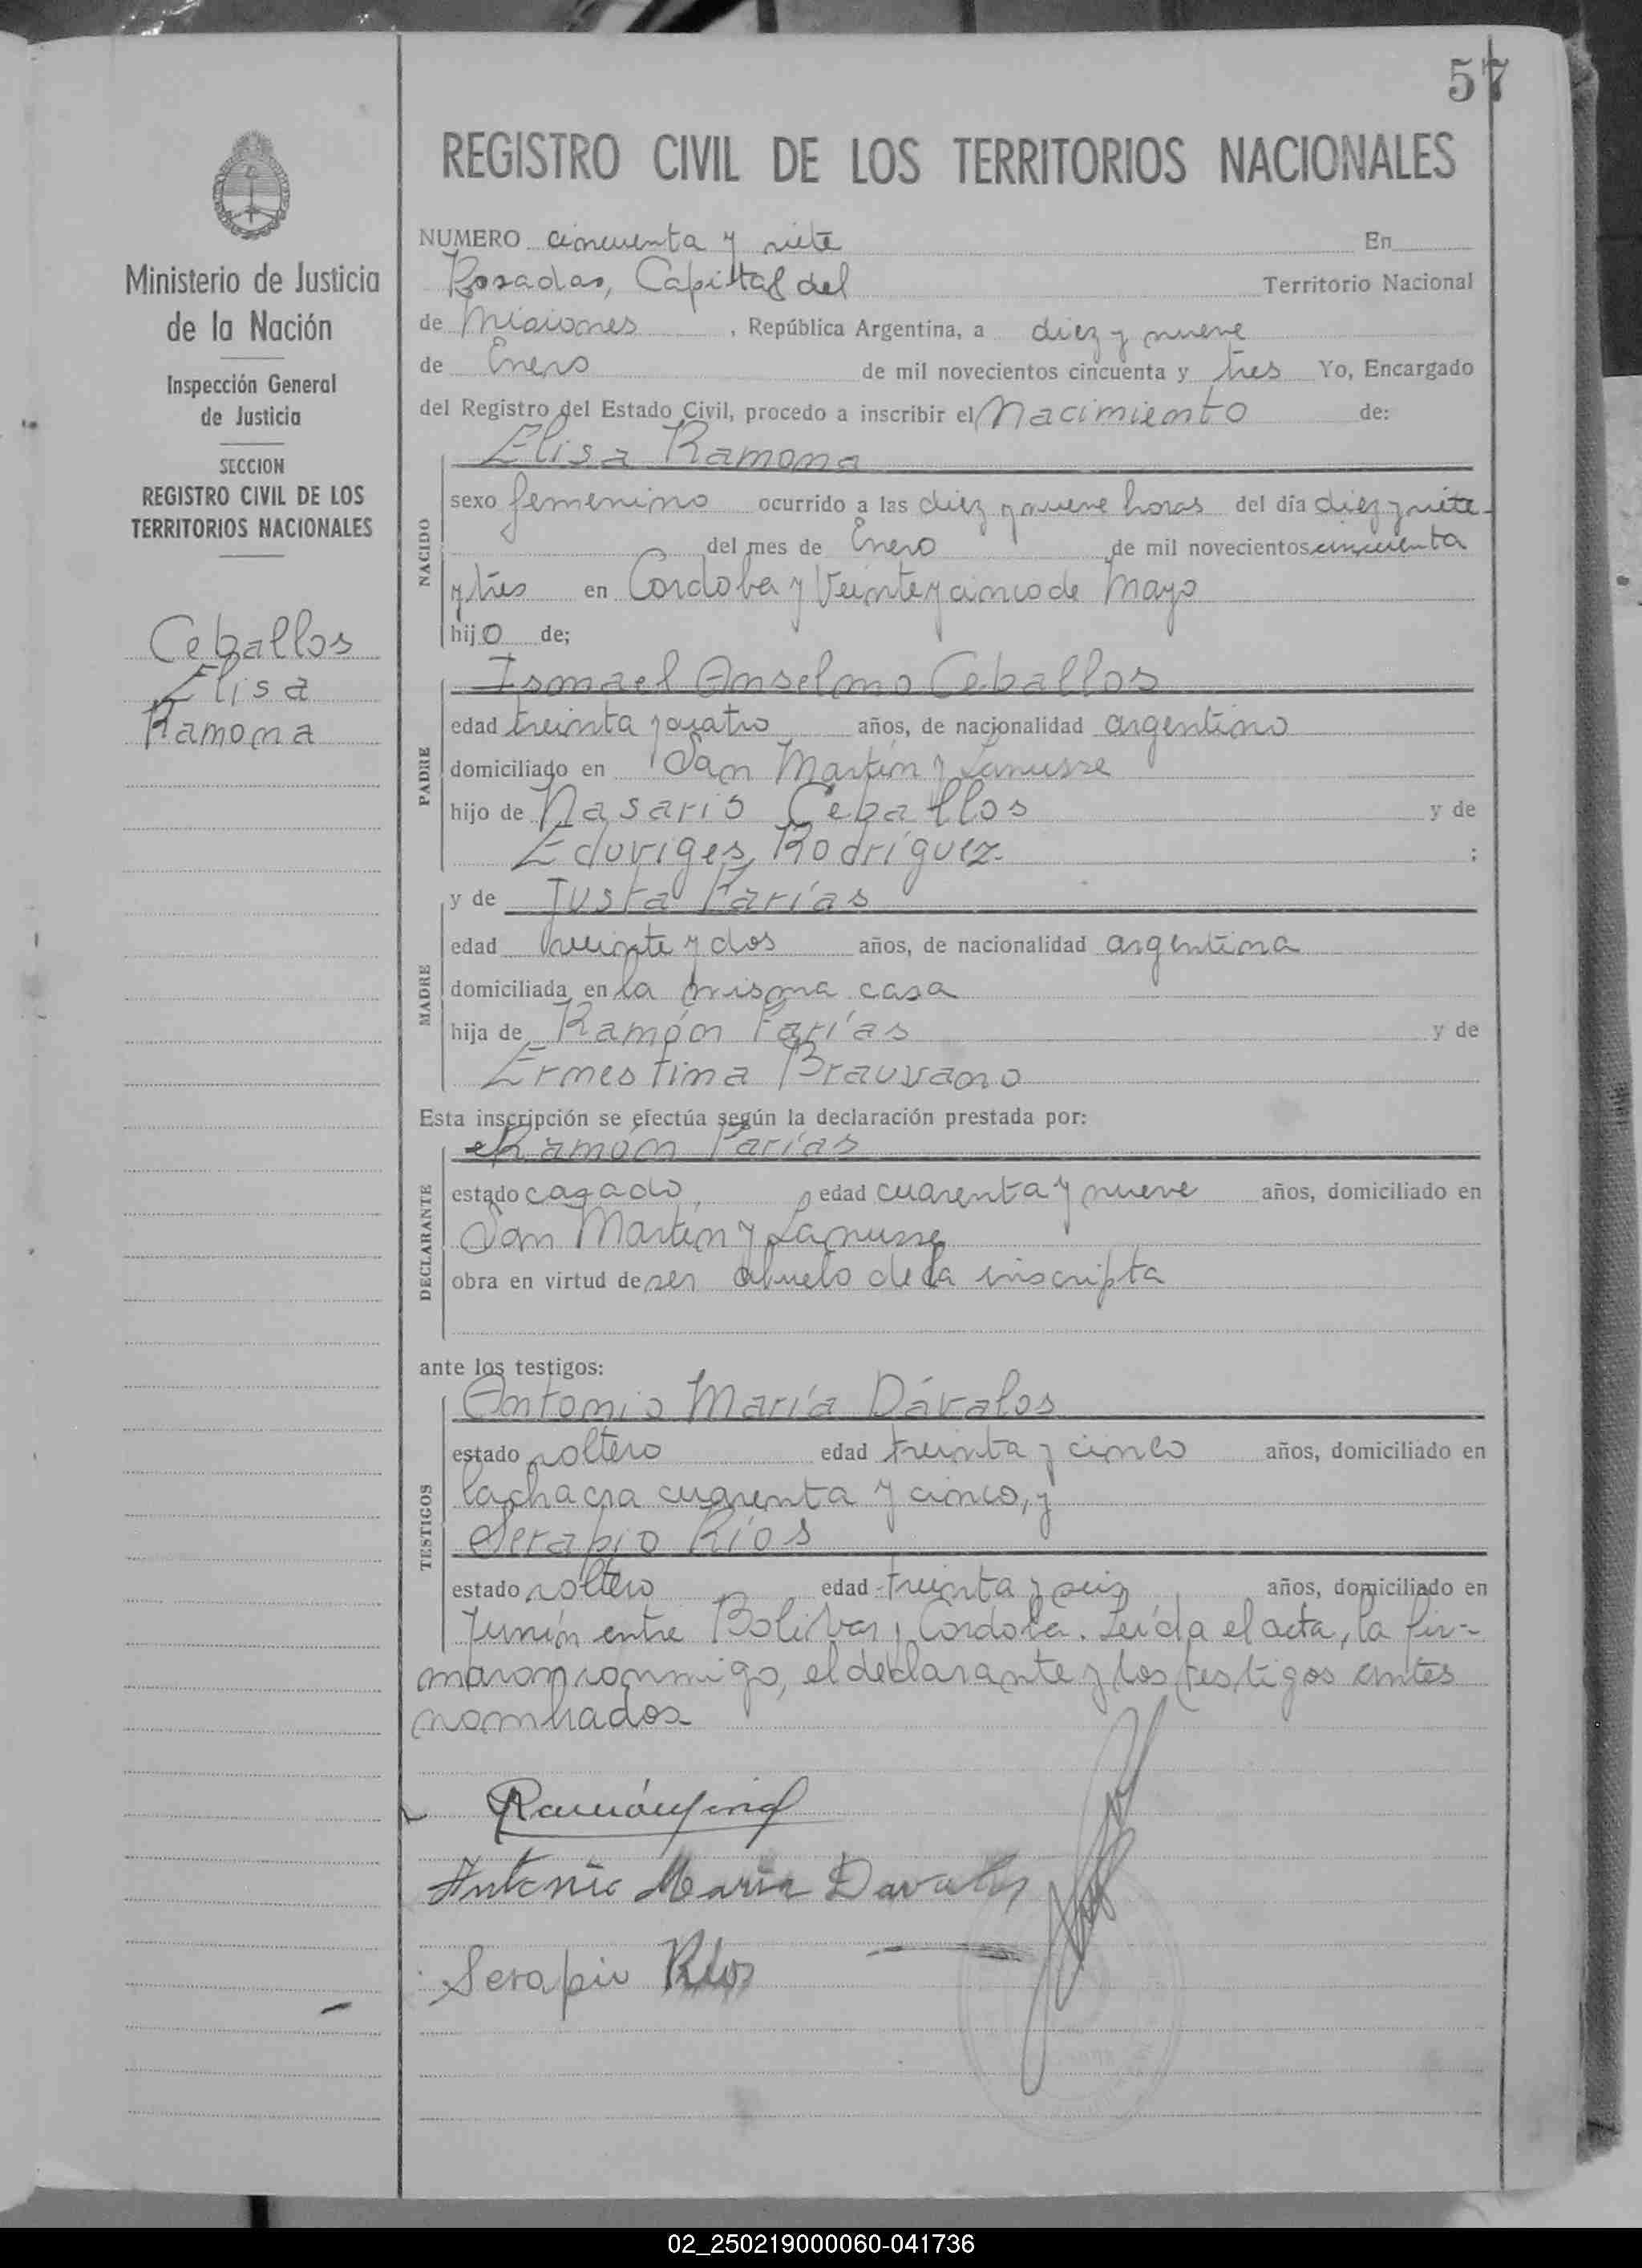 57
REGISTRO CIVIL DE LOS TERRITORIOS NACIONALES
Ministerio de Justicia
de la Nación
Inspección General
de Justicia
SECCION
REGISTRO CIVIL DE LOS
TERRITORIOS NACIONALES
Ceballos
Elisa
Ramona
NUMERO cincuenta y siete En
Posadas, Capital del Territorio Nacional
de Misiones, República Argentina, a diez y nueve
de Enero de mil novecientos cincuenta y tres Yo, Encargado
del Registro del Estado Civil, procedo a inscribir el Nacimiento de:
NACIDO
Elisa Ramona
sexo femenino ocurrido a las diez y nueve horas del día diez y siete
del mes de Enero de mil novecientos cincuenta
y tres en Cordoba y Veinte y cinco de Mayo
hijo de;
PADRE
Ismael Anselmo Ceballos
edad treinta y cuatro años, de nacionalidad argentino
domiciliado en San Martín y Lanusse
hijo de Nasario Ceballos y de
Eduviges Rodríguez ;
MADRE
y de Justa Farías
edad veinte y dos años, de nacionalidad argentina
domiciliada en la misma casa
hija de Ramón Farías y de
Ernestina
Esta inscripción se efectúa según la declaración prestada por:
DECLARANTE
Ramón Farías
estado casado, edad cuarenta y nueve años, domiciliado en
San Martín y Lanusse
obra en virtud de ser abuelo de la inscripta
ante los testigos:
TESTIGOS
Antonio María Dávalos
estado soltero edad treinta y cinco años, domiciliado en
la chacra cuarenta y cinco, y
Serapio Ríos
estado soltero edad treinta y seis años, domiciliado en
Junín entre Bolívar y Cordoba. Leída el acta, la fir-
maron conmigo, el declarante y los testigos antes
nombrados
Antonio María Davalos
Serapio Ríos
02_250219000060-041736